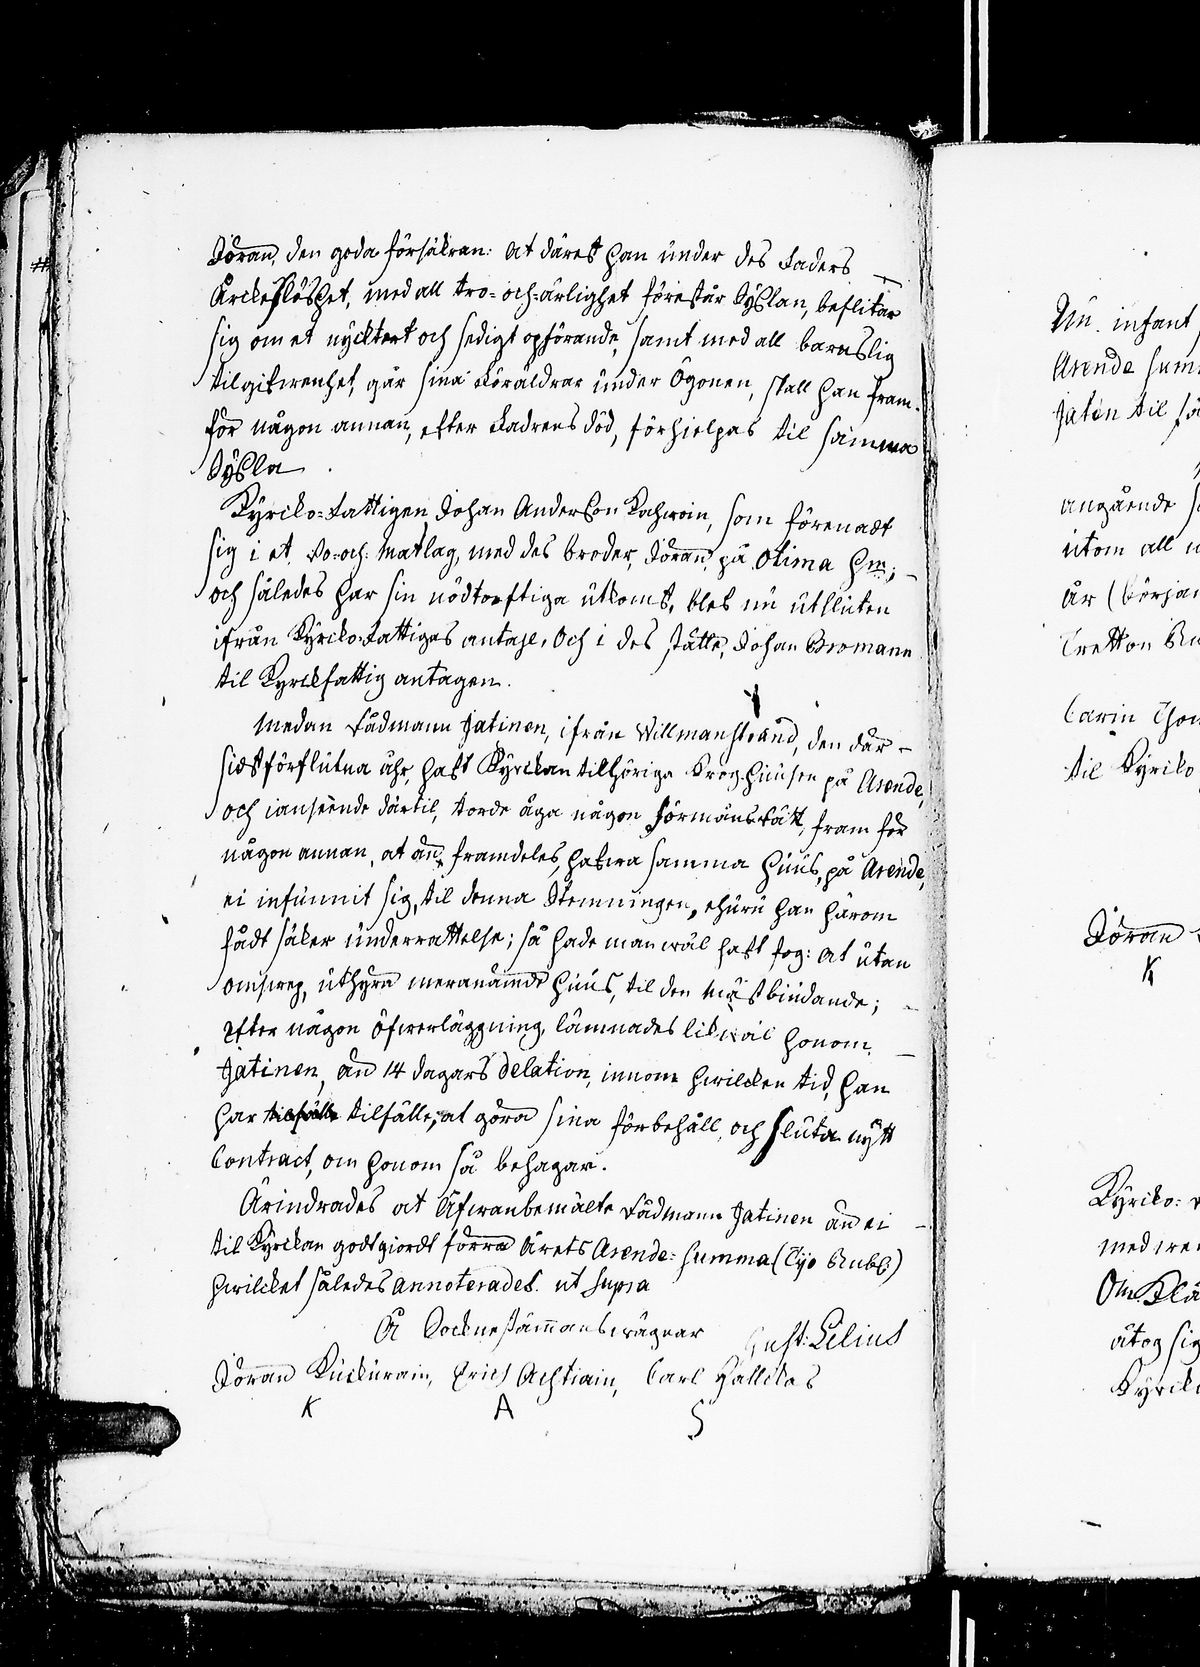 Jöran, den goda försäkran: at däres han under des Faders
med all tro- och ärlighet förestår Syßlan, beflitar
sig om et nycktert och sedigt opförande, samt med all barnslig
tilgifwenhet, går sina Föräldrar under Ögonen, skall han fram-
för någon annan, efter Fadrens död, förhielpas til samma
Syßla
Kyrcko-Fattigen Johan Anderßon Kochwoin, som förenadt
sig i et Bo- och Matlag, med des broder, Jöran på Otima hm;
och således har sin nödtorftiga utkomst, blef nu utsluten
ifrån Kyrcko-Fattigas antahl, Och i des ställe, Johan Bromann
til Kyrckfattig antagen.
Medan Rådmann Jatinen, ifrån Willmanstrand, den där
sidstförflutna åhr, haft Kyrckan tillhöriga Krog-huusen på Arende,
och i anseende därtil, torde äga någon Förmånsrätt, fram för
någon annan, at än framdeles, hafwa samma huus, på Arende,
ei infunnit sig, til denna Stemningen, ehuru han härom
fådt säker underrättelse; så hade man wäl haft fog: at utan
omswep, uthyra meranämde huus, til den mästbiudande;
Efter någon öfwerläggning, lämnades likwäl honom
Jatinen, än 14 dagars Delation, innom hwilcken tid, han
har tilfälle, at göra sina förbehåll, och Sluta nytt
Contract, om honom så behagar.
Ärindrades at Åfwanbemälte Rådmann Jatinen än ei
til Kyrckan godtgiordt förra Årets Arende-Summa (Tijo Rubl)
hwilcket således annoterades. ut Supra
Å Sockne stämmans wägnar Gust: Lilius
Jöran Kuckurain, Erich Achtiain, Carl Hällckes
K A S
Nu infant
Arende Sum
Jaten til
angående
utom all
År (början
Tretton Ru
Carin Tho
til Kyrcko
Jöran
K
Kyrcko:
med
Om
åtog sig
Kyrck